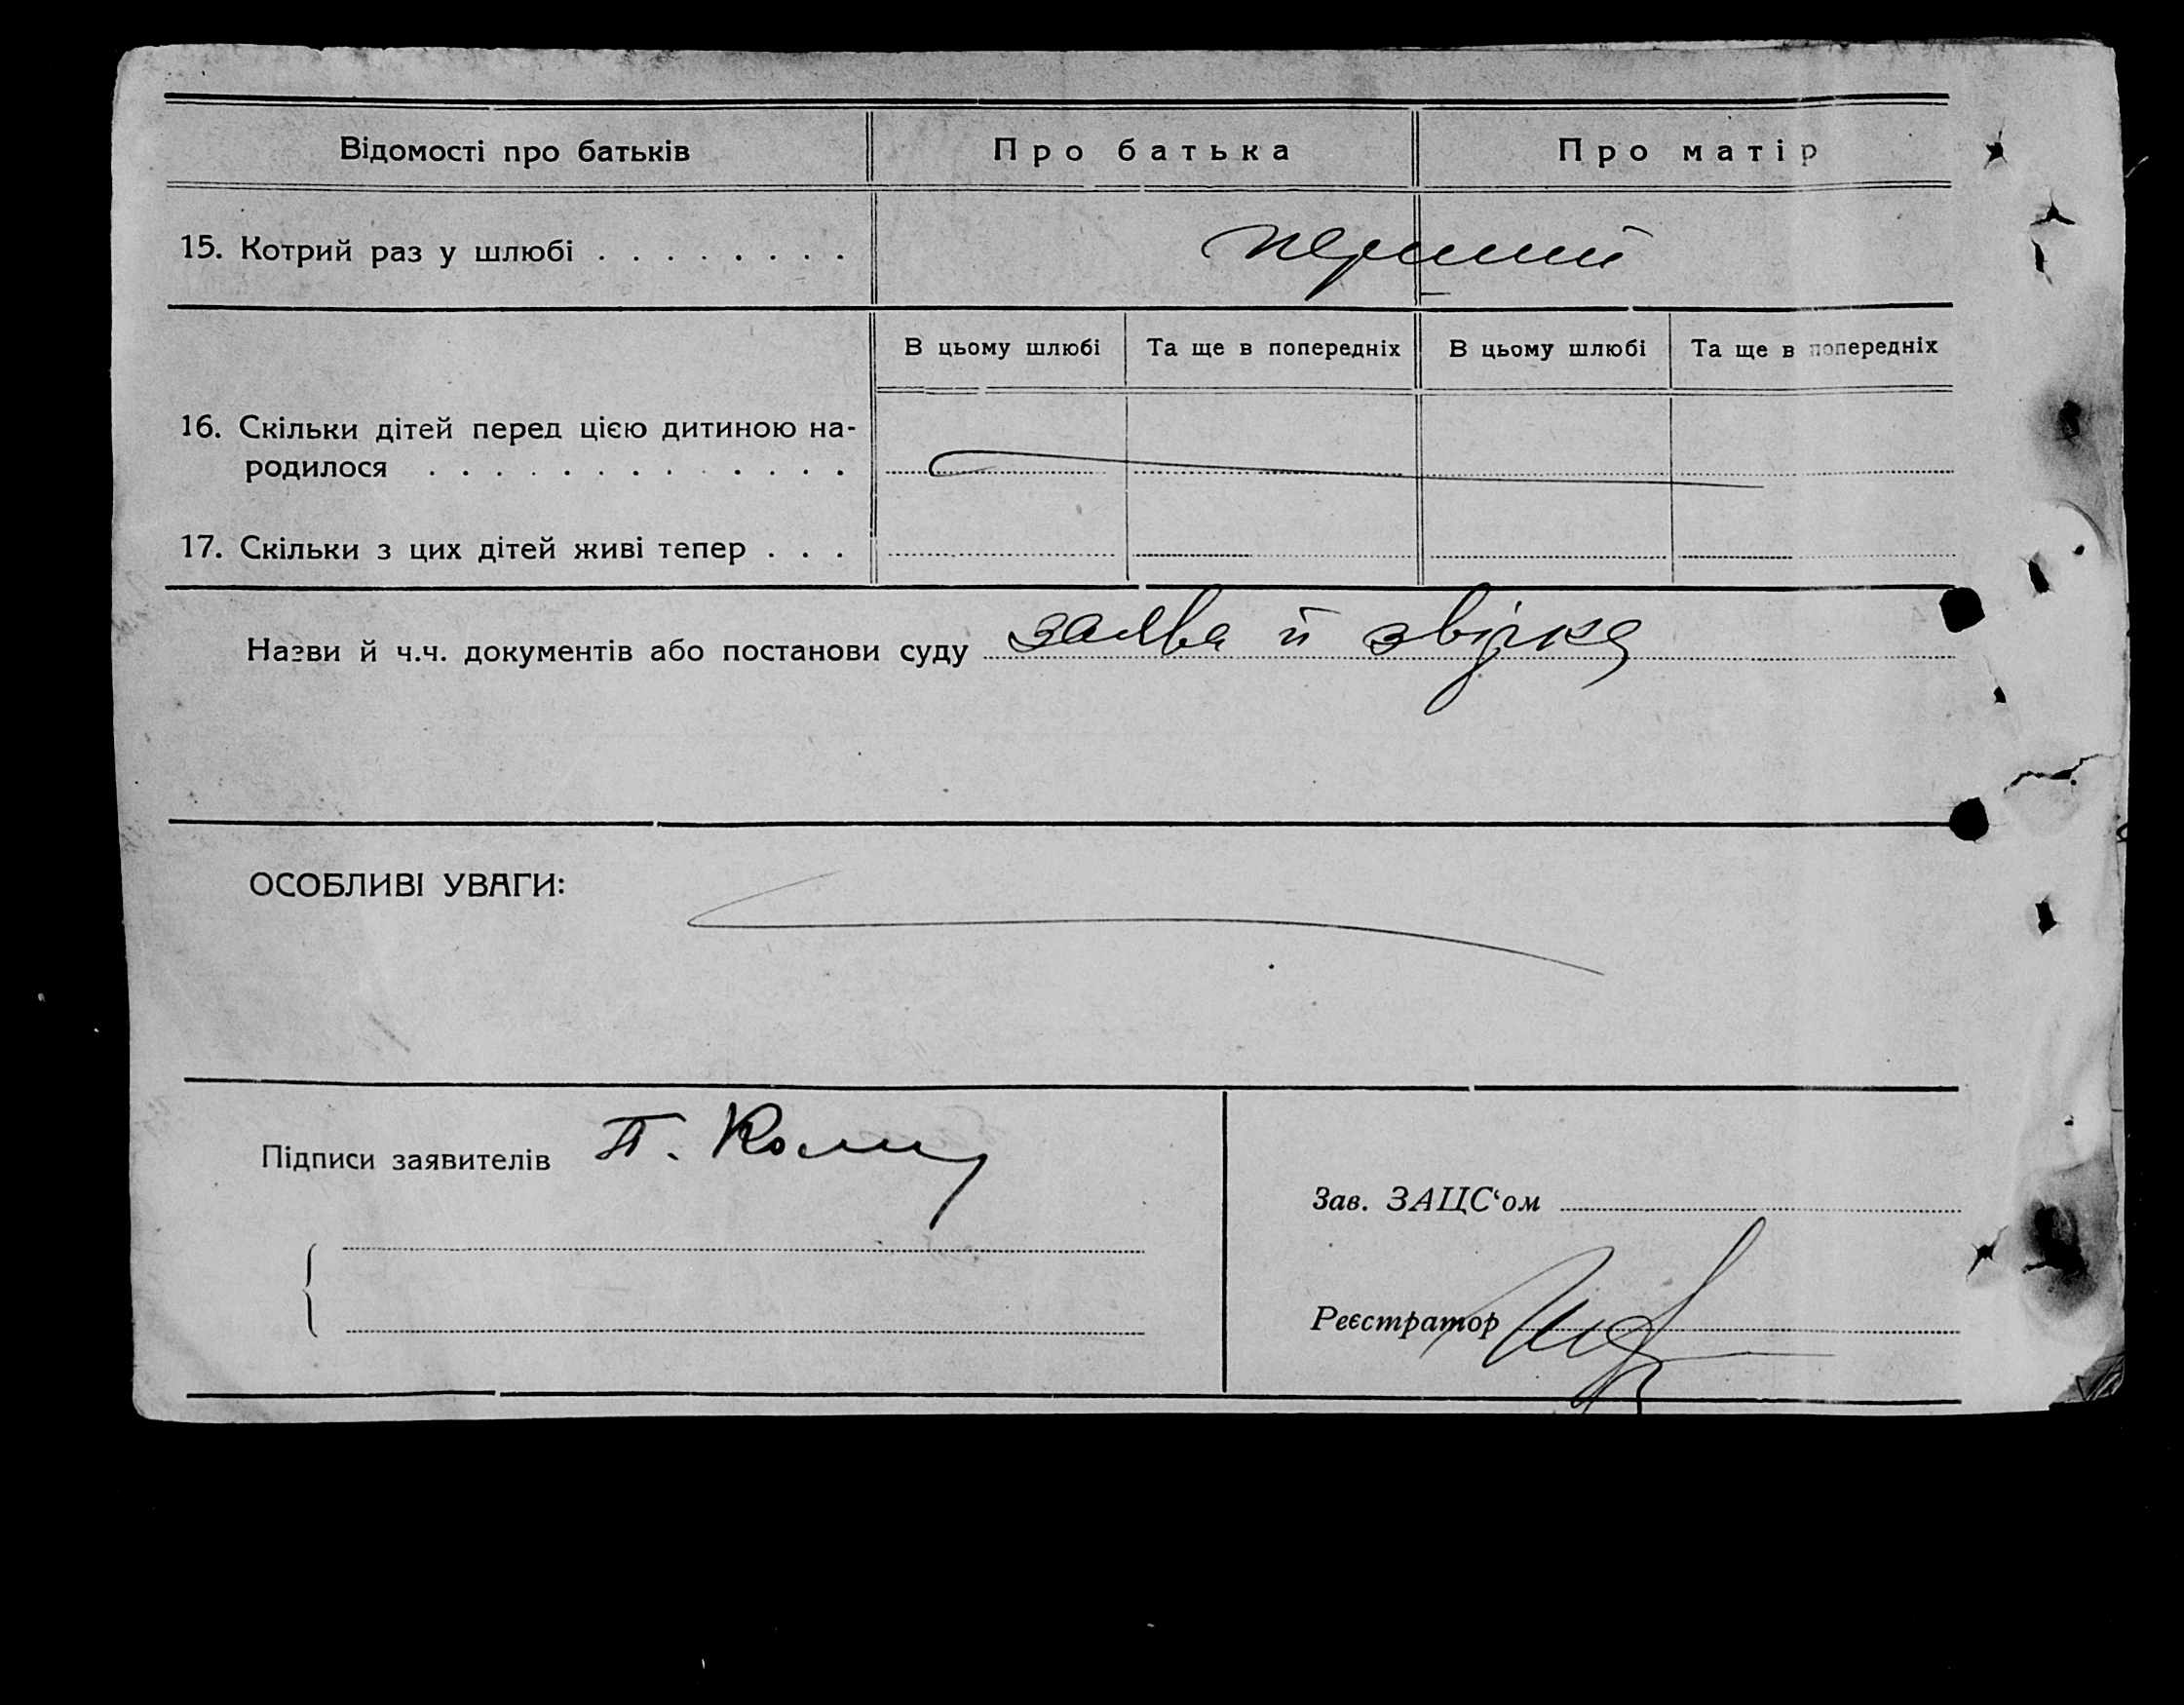 Відомості про батьків Про батька Про матір
15. Котрий раз у шлюбі . . . . . . . . перший
В цьому шлюбі Та ще в попередніх В цьому шлюбі Та ще в попередніх
16. Скільки дітей перед цією дитиною на-
родилося . . . . . . . . . . . . .
17. Скільки з цих дітей живі тепер . . .
Назви й ч.ч. документів або постанови суду заява й звірка
ОСОБЛИВІ УВАГИ:
Підписи заявителів П.
Зав. ЗАЦС‘ом
Реєстратор